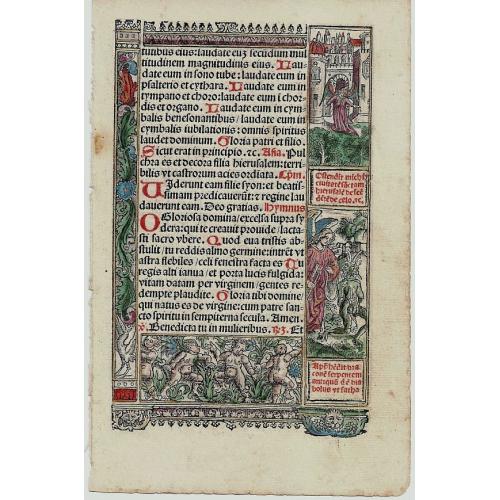 tutibus eius: laudate eum secũdum mul
titudinem magnitudinis eius. Lau
date eum in sono tube: laudate eum in
psalterio et cythara. Laudate eum in
tympano et choro: laudate eum ĩ chor
dis et organo. Laudate eum in cym
balis benesonantibus / laudate eum in
cymbalis iubilationis: omnis spiritus
laudet dominum. Gloria patri et filio.
Sicut erat in principio. ⁊c. Añ. Pul
chra es et decora filia hierusalem: terri
bilis vt castrorum acies ordĩata. Cpm̃.
Uiderunt eam filie syon: et beatis
simam predicauerũt: ⁊ regine lau
dauerunt eam. Deo gratias. Hymnus
O Gloriosa domina / excelsa supra sy
dera: qui te creauit prouide / lacta
sti sacro vbere. Quod eua tristis ab
stulit / tu reddis almo germine: intrẽt vt
astra flebiles / celi fenestra facta es Tu
regis alti ianua / et porta lucis fulgida:
vitam datam per virginem / gentes re
dempte plaudite. Gloria tibi domine
qui natus es de virgine: cum patre san
cto spiritu in sempiterna secula. Amen.
Benedicta tu in mulieribus. Et
Ostendit michi
ciuitatẽ sãctam
hierusalẽ descẽ
dẽtẽ de celo. ⁊c.
conẽ serpentem
antiquũ
bolus